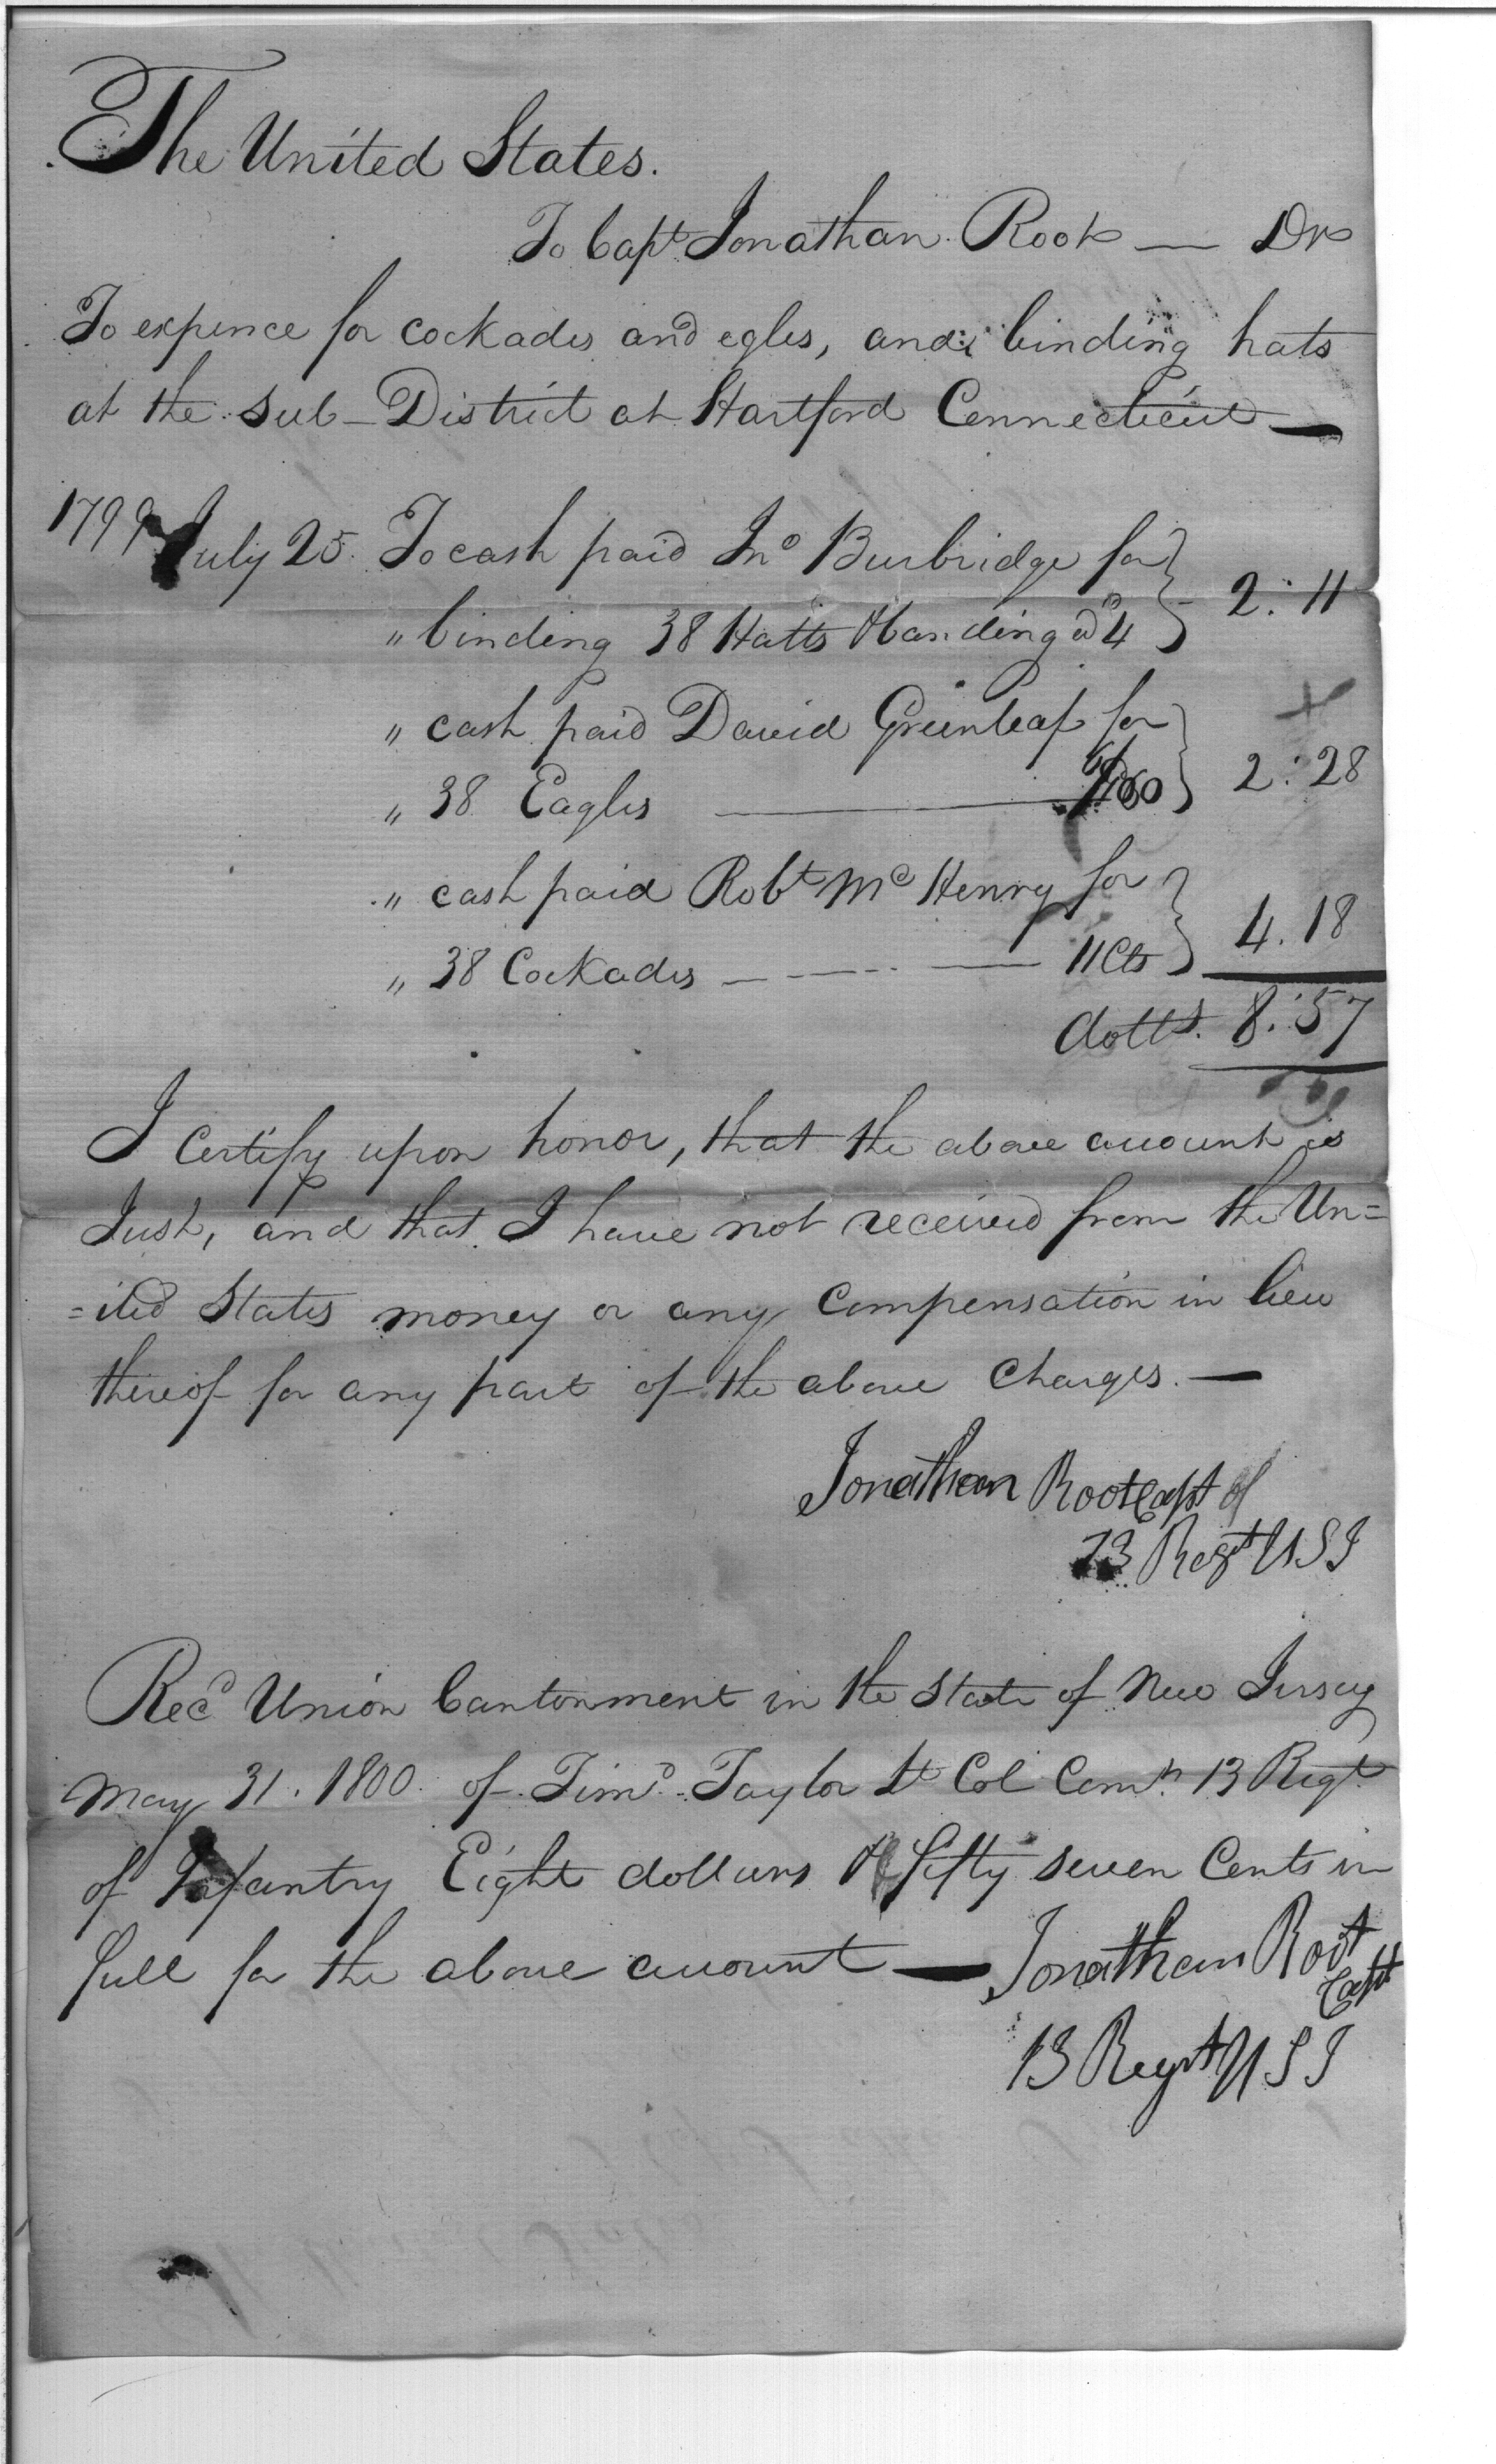 The United States.
To Capt Jonathan Root — Dr
To expence for cockades and egles, and binding hats
at the Sub-District at Hartford Connecticut —
1799 July 25. To cash paid Jno Burbridge for
" binding 38 Hatts & banding @ 4d } 2:11
" cash paid David Greenleaf for
" 38 Eagles — } 2:28
" cash paid Robt McHenry for
" 38 Cockades — 11 Cts } 4.18
dolls. 8:57
I Certify upon honor, that the above account is
Just, and that I have not received from the Un=
=ited States money or any Compensation in lieu
thereof for any part of the above Charges. —
Jonathan Root Capt of
13 Regt USI
Recd Union Cantonment in the State of New Jersey
May 31. 1800. of Timo Taylor Lt Col Comdt 13 Regt
of Infantry Eight dollars & fifty seven Cents in
full for the above account — Jonathan Root
Capt
13 Regt USI